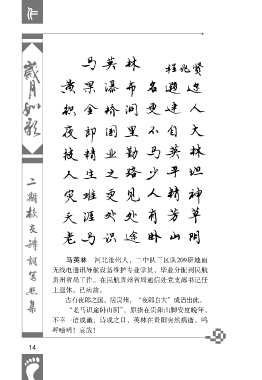 歲月如歌
二期校友詩詞寫照集
马英林
程兆贤
黄果瀑布名遐迩
织金桥洞更建人
夜郎国里不自大
技精业勤马英林
人生之路少平坦
灾难更见人精神
天涯处处有芳草
老马识途卧山阴
马英林 河北沧州人，二中队三区队209班地面
无线电通讯导航设备维护专业学员，毕业分配到民航
贵州省局工作。在民航贵州省局通信处党支部书记任
上退休，已病故。
古有夜郎之国，居贵州，“夜郎自大”成语出此。
“老马识途卧山阴”，原拟在贵阳山脚安度晚年，
不幸一语成谶，诗成之日，英林在贵阳突然病逝，呜
呼噫嘻！哀哉！
14